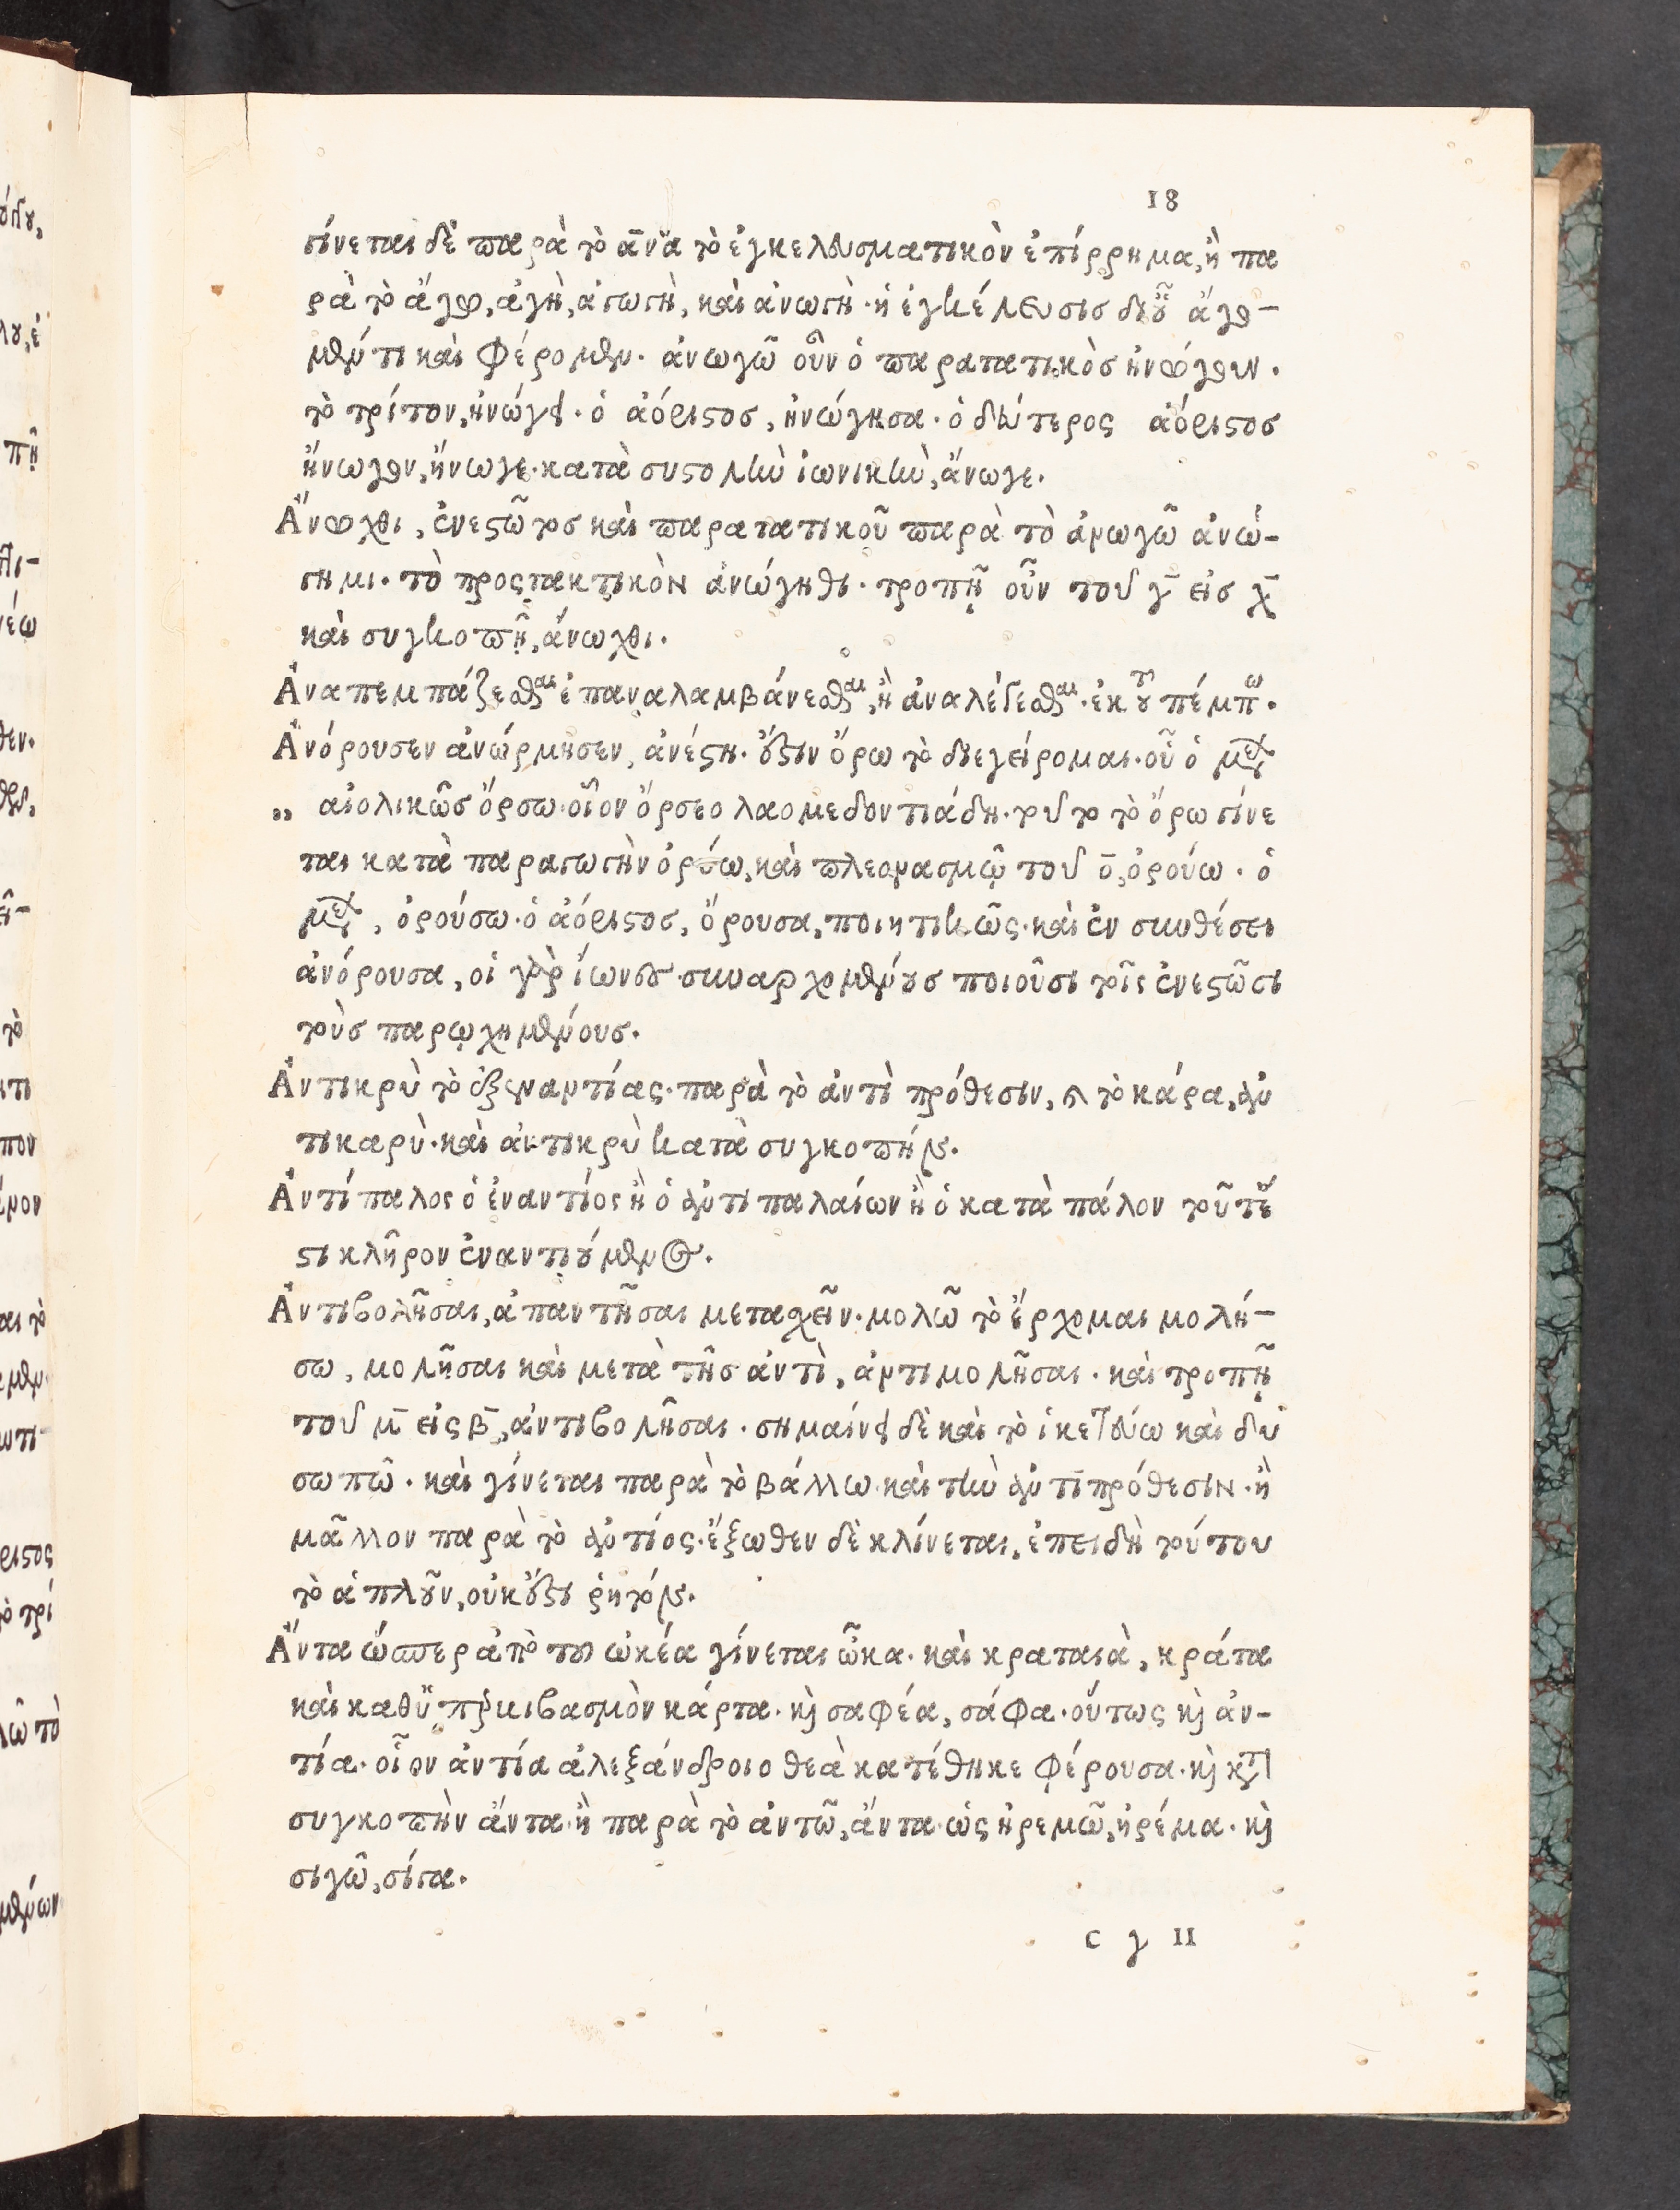 18
γίνεται δὲ παρὰ τὸ ἄνα τὸ ἐγκελευσματικὸν ἐπίρρημα, ἢ πα
ρὰ τὸ ἄγω, ἀγὴ, ἀγωγὴ, καὶ ἀνωγὴ· ἡ ἐγκέλευσισ δεῦ ἄγο-
μέν τι καὶ φέρομεν. ἀνωγῶ οὖν ὁ παρατατικὸσ ἠνώγουν.
τὸ τρίτον, ἠνώγει· ὁ ἀόριστοσ, ἠνώγησα· ὁ δεύτερος ἀόριστοσ
ἤνωγον, ἤνωγε· κατὰ συστολὴν ἰωνικὴν, ἄνωγε.
Ἄνωχθι, ἐνεστῶτοσ καὶ παρατατικοῦ παρὰ τὸ ἀνωγῶ ἀνώ-
γημι. τὸ προςτακτικὸν ἀνώγηθι· τροπῇ οὖν τοῦ γ εἰσ χ
καὶ συγκοπῇ, ἄνωχθι.
Ἀναπεμπάζεσθαι ἐπαναλαμβάνεσθαι, ἢ ἀναλέγεσθαι· ἐκ τοῦ πέμπω.
Ἀνόρουσεν ἀνώρμησεν, ἀνέστη· ἔστιν ὄρω τὸ διεγείρομαι· οὗ ὁ μέλλων
„ αἰολικῶσ ὄρσω· οἷον ὄρσεο λαομεδοντιάδη· τοῦτο τὸ ὄρω γίνε
ται κατὰ παραγωγὴν ὀρύω, καὶ πλεονασμῷ τοῦ ο, ὀρούω· ὁ
μέλλων, ὀρούσω· ὁ ἀόριστοσ, ὄρουσα, ποιητικῶς· καὶ ἐν συνθέσει
ἀνόρουσα, οἱ γὰρ ἴωνεσ συναρχομένουσ ποιοῦσι τοῖς ἐνεστῶσι
τοὺσ παρῳχημένουσ.
Ἀντικρὺ τὸ ἐξεναντίας· παρὰ τὸ ἀντὶ πρόθεσιν, καὶ τὸ κάρα, ἀν
τικαρὺ· καὶ ἀντικρὺ κατὰ συγκοπήν.
Ἀντίπαλος ὁ ἐναντίος ἢ ὁ ἀντιπαλαίων ἢ ὁ κατὰ πάλον τοῦτέ
στι κλῆρον ἐναντιούμενος.
Ἀντιβολῆσαι, ἀπαντῆσαι μετασχεῖν· μολῶ τὸ ἔρχομαι μολή-
σω, μολῆσαι καὶ μετὰ τῆσ ἀντὶ, ἀντιμολῆσαι· καὶ τροπῇ
τοῦ μ εἰς β, ἀντιβολῆσαι· σημαίνει δὲ καὶ τὸ ἱκετεύω καὶ δυ
σωπῶ· καὶ γίνεται παρὰ τὸ βάλλω καὶ τὴν ἀντὶ πρόθεσιν· ἢ
μᾶλλον παρὰ τὸ ἀντίος· ἔξωθεν δὲ κλίνεται, ἐπειδὴ τούτου
τὸ ἁπλοῦν, οὐκ ἔστι ῥητόν.
Ἄντα ὥσπερ ἀπὸ τοῦ ὠκέα γίνεται ὦκα· καὶ κραταιὰ, κράτα
καὶ καθ' ὑπερβιβασμὸν κάρτα· καὶ σαφέα, σάφα· οὕτως καὶ ἀν-
τία· οἷον ἀντία ἀλεξάνδροιο θεὰ κατέθηκε φέρουσα· καὶ κατὰ
συγκοπὴν ἄντα· ἢ παρὰ τὸ ἀντῶ, ἄντα· ὡς ἠρεμῶ, ἠρέμα· καὶ
σιγῶ, σίγα.
c γ II